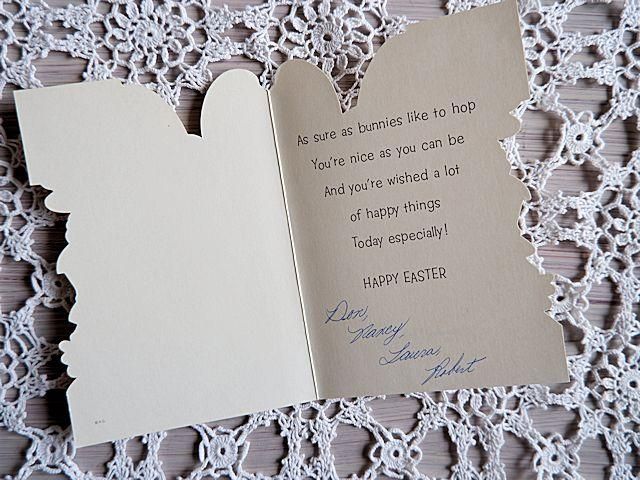 As sure as bunnies like to hop
You're nice as you can be
And you're wished a lot
of happy things
Today especially!
HAPPY EASTER
Don,
Nancy,
Laura,
Robert